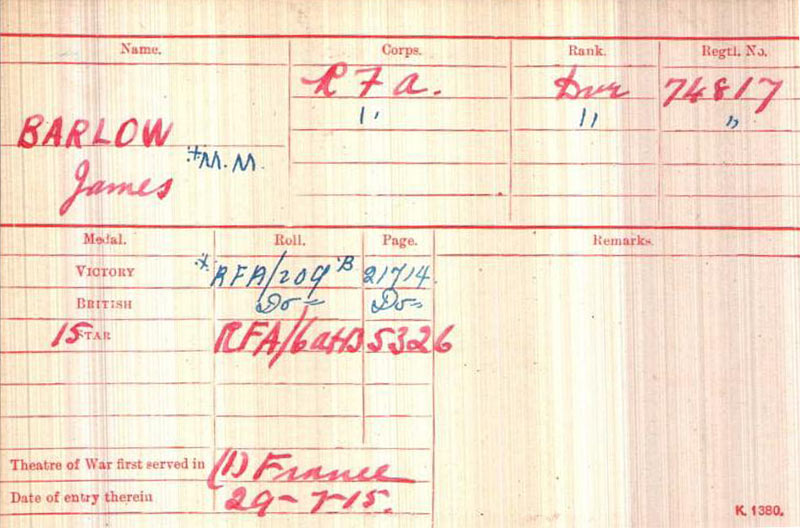 Name. Corps. Rank. Regtl. No.
R F A. Dvr 74817
" " "
BARLOW
*M.M.
James
Medal. Roll. Page. Remarks.
VICTORY * RFA/209 B 21714.
BRITISH Do = Do =
15 STAR RFA/6 5326
Theatre of War first served in (1) France
Date of entry therein 29-7-15.
K. 1380.